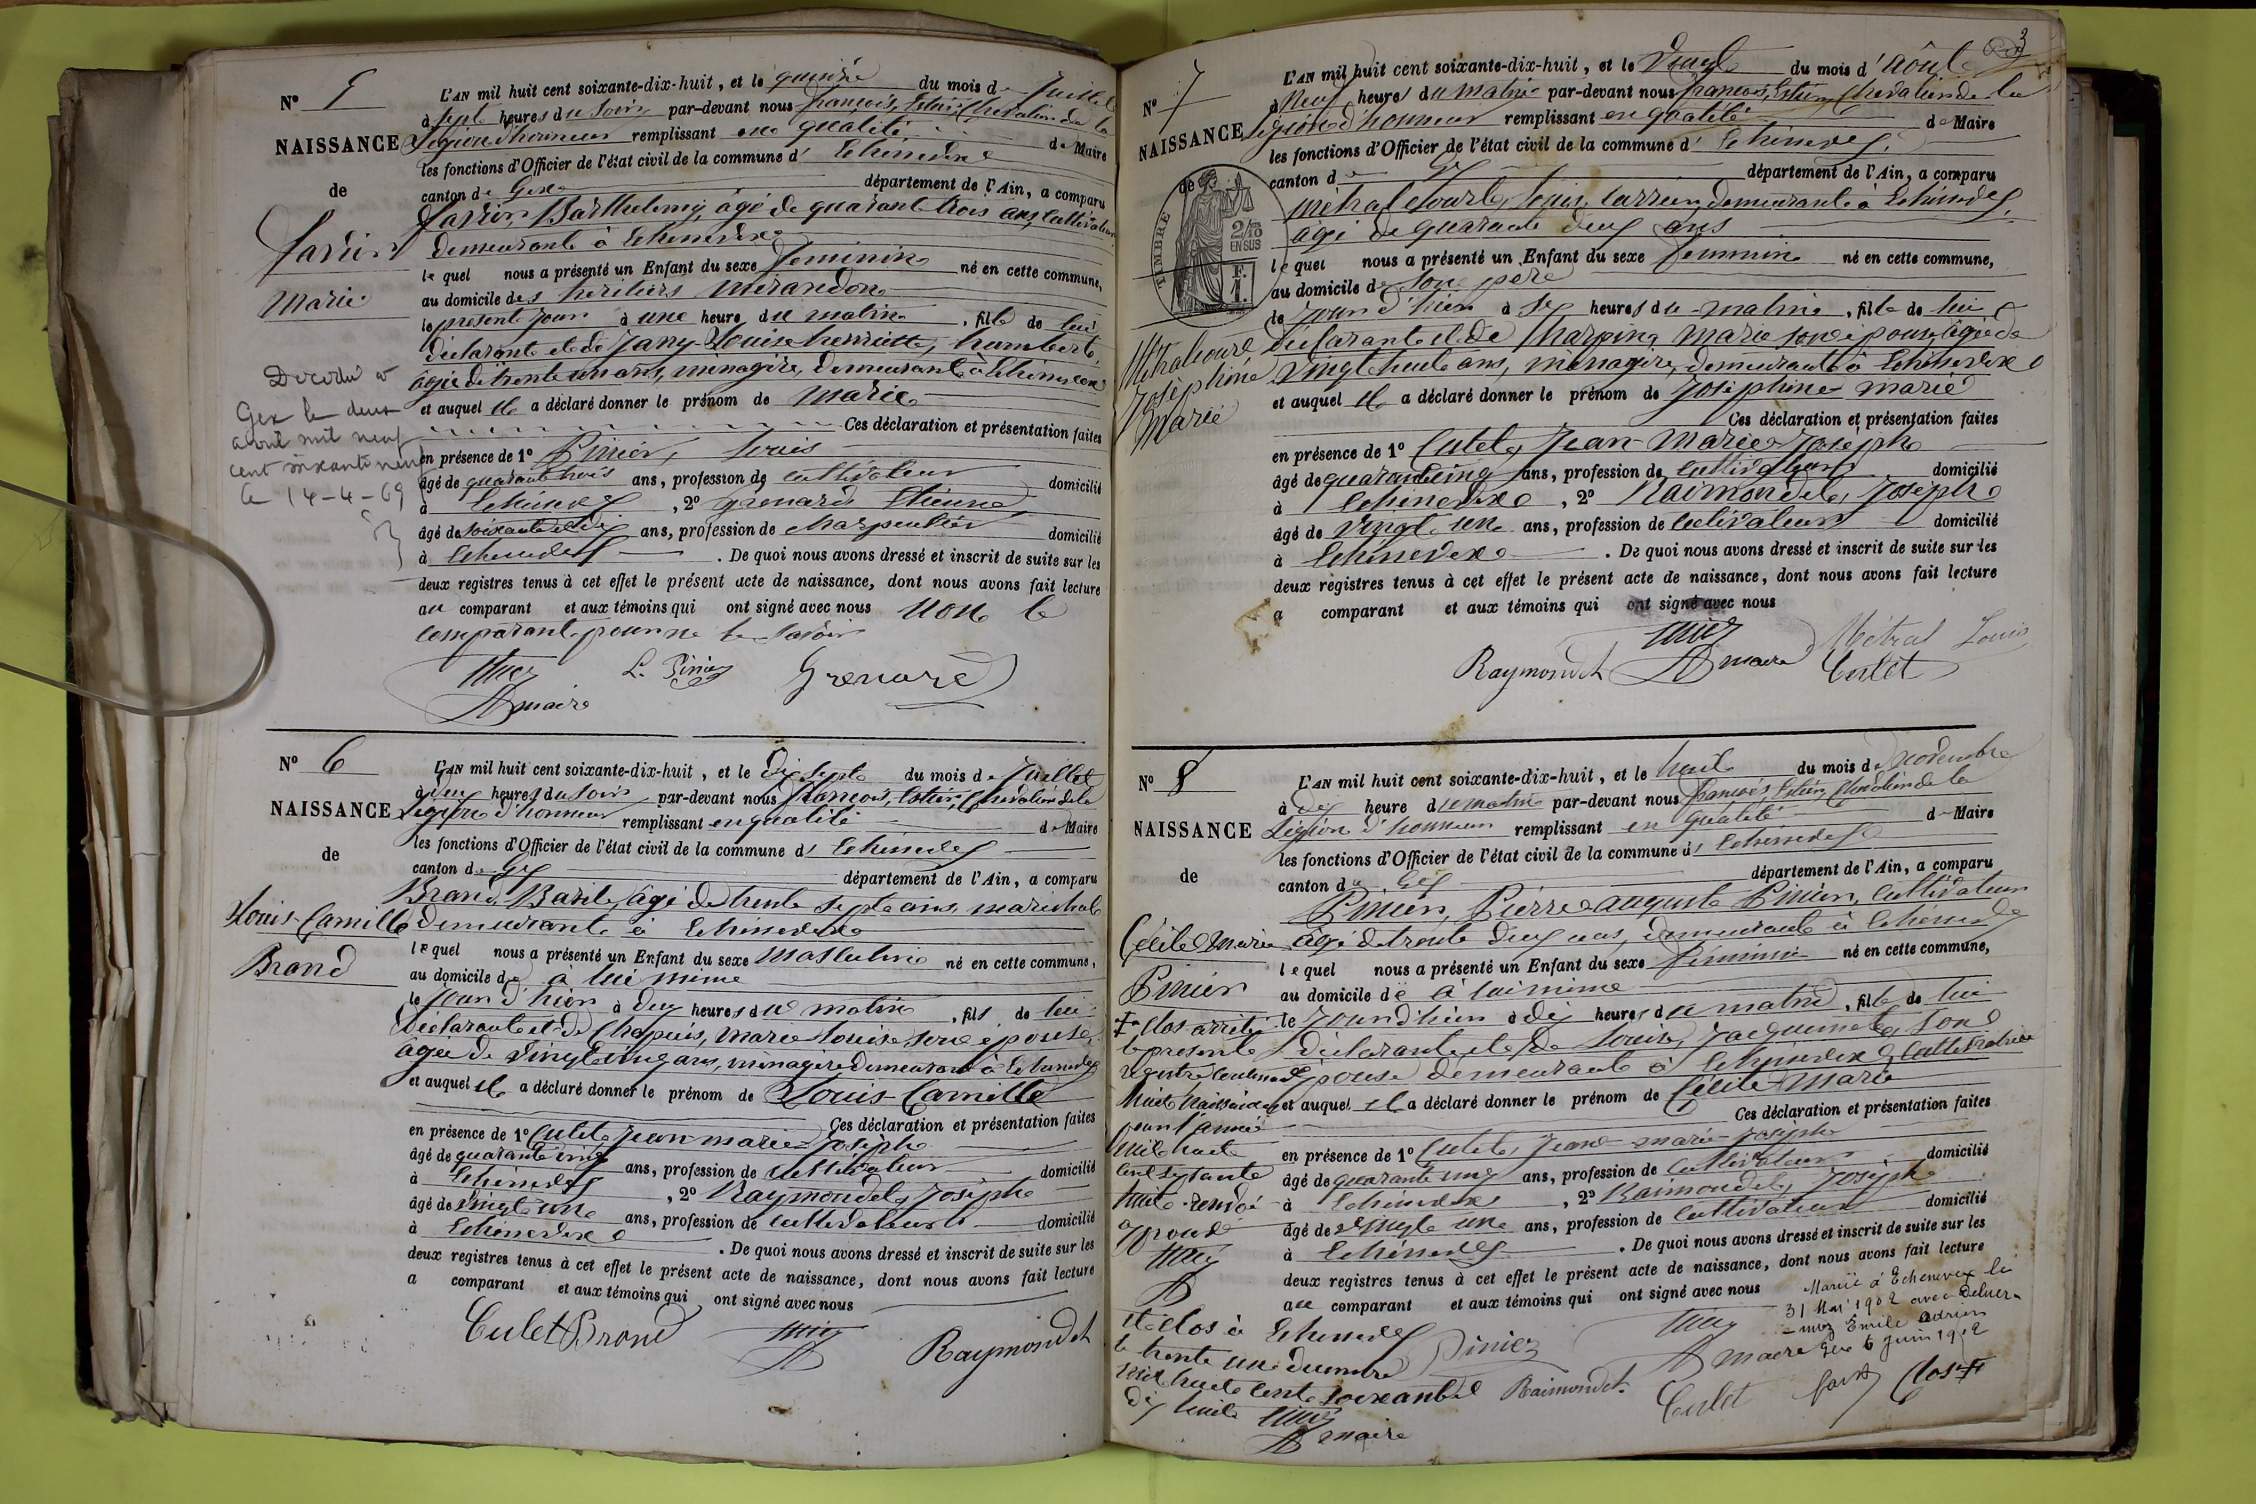 N° 5
NAISSANCE
de
Marie
L'AN mil huit cent soixante-dix-huit, et le quinze du mois de Juillet
à sept heures du soir par-devant nous françois, Chevalier de la
Légion d'honneur remplissant en qualité de Maire
les fonctions d'Officier de l'état civil de la commune d' Echenevex
canton de Gex département de l'Ain, a comparu
Barthelemy, âgé de quarante trois ans, cultivateur
demeurant à Echenevex
le quel nous a présenté un Enfant du sexe feminin né en cette commune,
au domicile des heritiers mirandon
le present jour à une heure du matin, fille de lui
déclarant et de Louise henriette,
âgée de trente un ans, ménagère, demeurant à Echenevex
et auquel il a déclaré donner le prénom de Marie
Ces déclaration et présentation faites
en présence de 1° Pinier, Louis
âgé de quarante trois ans, profession de cultivateur domicilié
à Echenevex, 2° grenard Etienne
âgé de soixante et dix ans, profession de charpentier domicilié
à Echenevex. De quoi nous avons dressé et inscrit de suite sur les
deux registres tenus à cet effet le présent acte de naissance, dont nous avons fait lecture
au comparant et aux témoins qui ont signé avec nous non le
comparant pour ne le savoir
L. Pinier Grenard
maire
Décédée à
Gex le deux
avril mil neuf
cent soixante neuf
le 14-4-69
N° 6
NAISSANCE
de
Louis-Camille
Brand
L'AN mil huit cent soixante-dix-huit, et le dix sept du mois de Juillet
à deux heures du soir par-devant nous françois, Chevalier de la
Légion d'honneur remplissant en qualité de Maire
les fonctions d'Officier de l'état civil de la commune d' Echenevex
canton de Gex département de l'Ain, a comparu
Brand, Basile, âgé de trente sept ans, marechal
demeurant à Echenevex
le quel nous a présenté un Enfant du sexe masculin né en cette commune,
au domicile de à lui mime
le jour d'hier à deux heures du matin, fils de lui
déclarant et de Chapuis, marie Louise son épouse,
âgée de vingt cinq ans, ménagère demeurant à Echenevex
et auquel il a déclaré donner le prénom de Louis-Camille
Ces déclaration et présentation faites
en présence de 1° Culet, Jean-marie-Joseph
âgé de quarante cinq ans, profession de cultivateur domicilié
à Echenevex, 2° Raymondet, Joseph
âgé de vingt une ans, profession de cultivateur domicilié
à Echenevex. De quoi nous avons dressé et inscrit de suite sur les
deux registres tenus à cet effet le présent acte de naissance, dont nous avons fait lecture
a comparant et aux témoins qui ont signé avec nous
Culet Brand Raymondet
3
N° 7
NAISSANCE
de
TIMBRE
2/10
EN SUS
F.
1.
Joséphine
Marie
L'AN mil huit cent soixante-dix-huit, et le Vingt du mois d' Août
à Neuf heures du matin par-devant nous françois, Chevalier de la
Légion d'honneur remplissant en qualité de Maire
les fonctions d'Officier de l'état civil de la commune d' Echenevex
canton de Gex département de l'Ain, a comparu
métral Louis, demeurant à Echenevex,
âgé de quarante deux ans
le quel nous a présenté un Enfant du sexe feminin né en cette commune,
au domicile de son père
le jour d'hier à six heures du matin, fille de lui
déclarant et de marie son épouse âgée de
vingt huit ans, ménagère, demeurant à Echenevex
et auquel il a déclaré donner le prénom de Joséphine marie
Ces déclaration et présentation faites
en présence de 1° Culet, Jean-Marie-Joseph
âgé de quarante cinq ans, profession de cultivateur domicilié
à Echenevex, 2° Raimondet, Joseph
âgé de vingt une ans, profession de cultivateur domicilié
à Echenevex. De quoi nous avons dressé et inscrit de suite sur les
deux registres tenus à cet effet le présent acte de naissance, dont nous avons fait lecture
a comparant et aux témoins qui ont signé avec nous
Métral Louis
Raymondet maire Culet
N° 8
NAISSANCE
de
Cécile Marie
Pinier
L'AN mil huit cent soixante-dix-huit, et le huit du mois de novembre
à dix heure du matin par-devant nous françois, Chevalier de la
Légion d'honneur remplissant en qualité de Maire
les fonctions d'Officier de l'état civil de la commune d' Echenevex
canton de Gex département de l'Ain, a comparu
Pinier, Pierre auguste Pinier, cultivateur
âgé de trente deux ans, demeurant à Echenevex
le quel nous a présenté un Enfant du sexe féminin né en cette commune,
au domicile de à lui mime
le jour d'hier à dix heures du matin, fille de lui
déclarant et de Louise, Jacquemet, son
épouse demeurant à Echenevex cultivatrice
et auquel il a déclaré donner le prénom de Cécile-Marie
Ces déclaration et présentation faites
en présence de 1° Culet, Jean-marie-Joseph
âgé de quarante cinq ans, profession de cultivateur domicilié
à Echenevex, 2° Raimondet, Joseph
âgé de vingt une ans, profession de cultivateur domicilié
à Echenevex. De quoi nous avons dressé et inscrit de suite sur les
deux registres tenus à cet effet le présent acte de naissance, dont nous avons fait lecture
au comparant et aux témoins qui ont signé avec nous
Clos arrêté
le présent
registre contenant
huit naissances
pour l'année
mil huit
cent septante
huit
Mariée à Echenevex le
31 Mai 1902 avec
Emile Adrien
Gex 6 Juin 1902
Pinier maire
Raimondet Culet
et clos à Echenevex
le trente un decembre
mil huit cent soixante
dix huit
maire